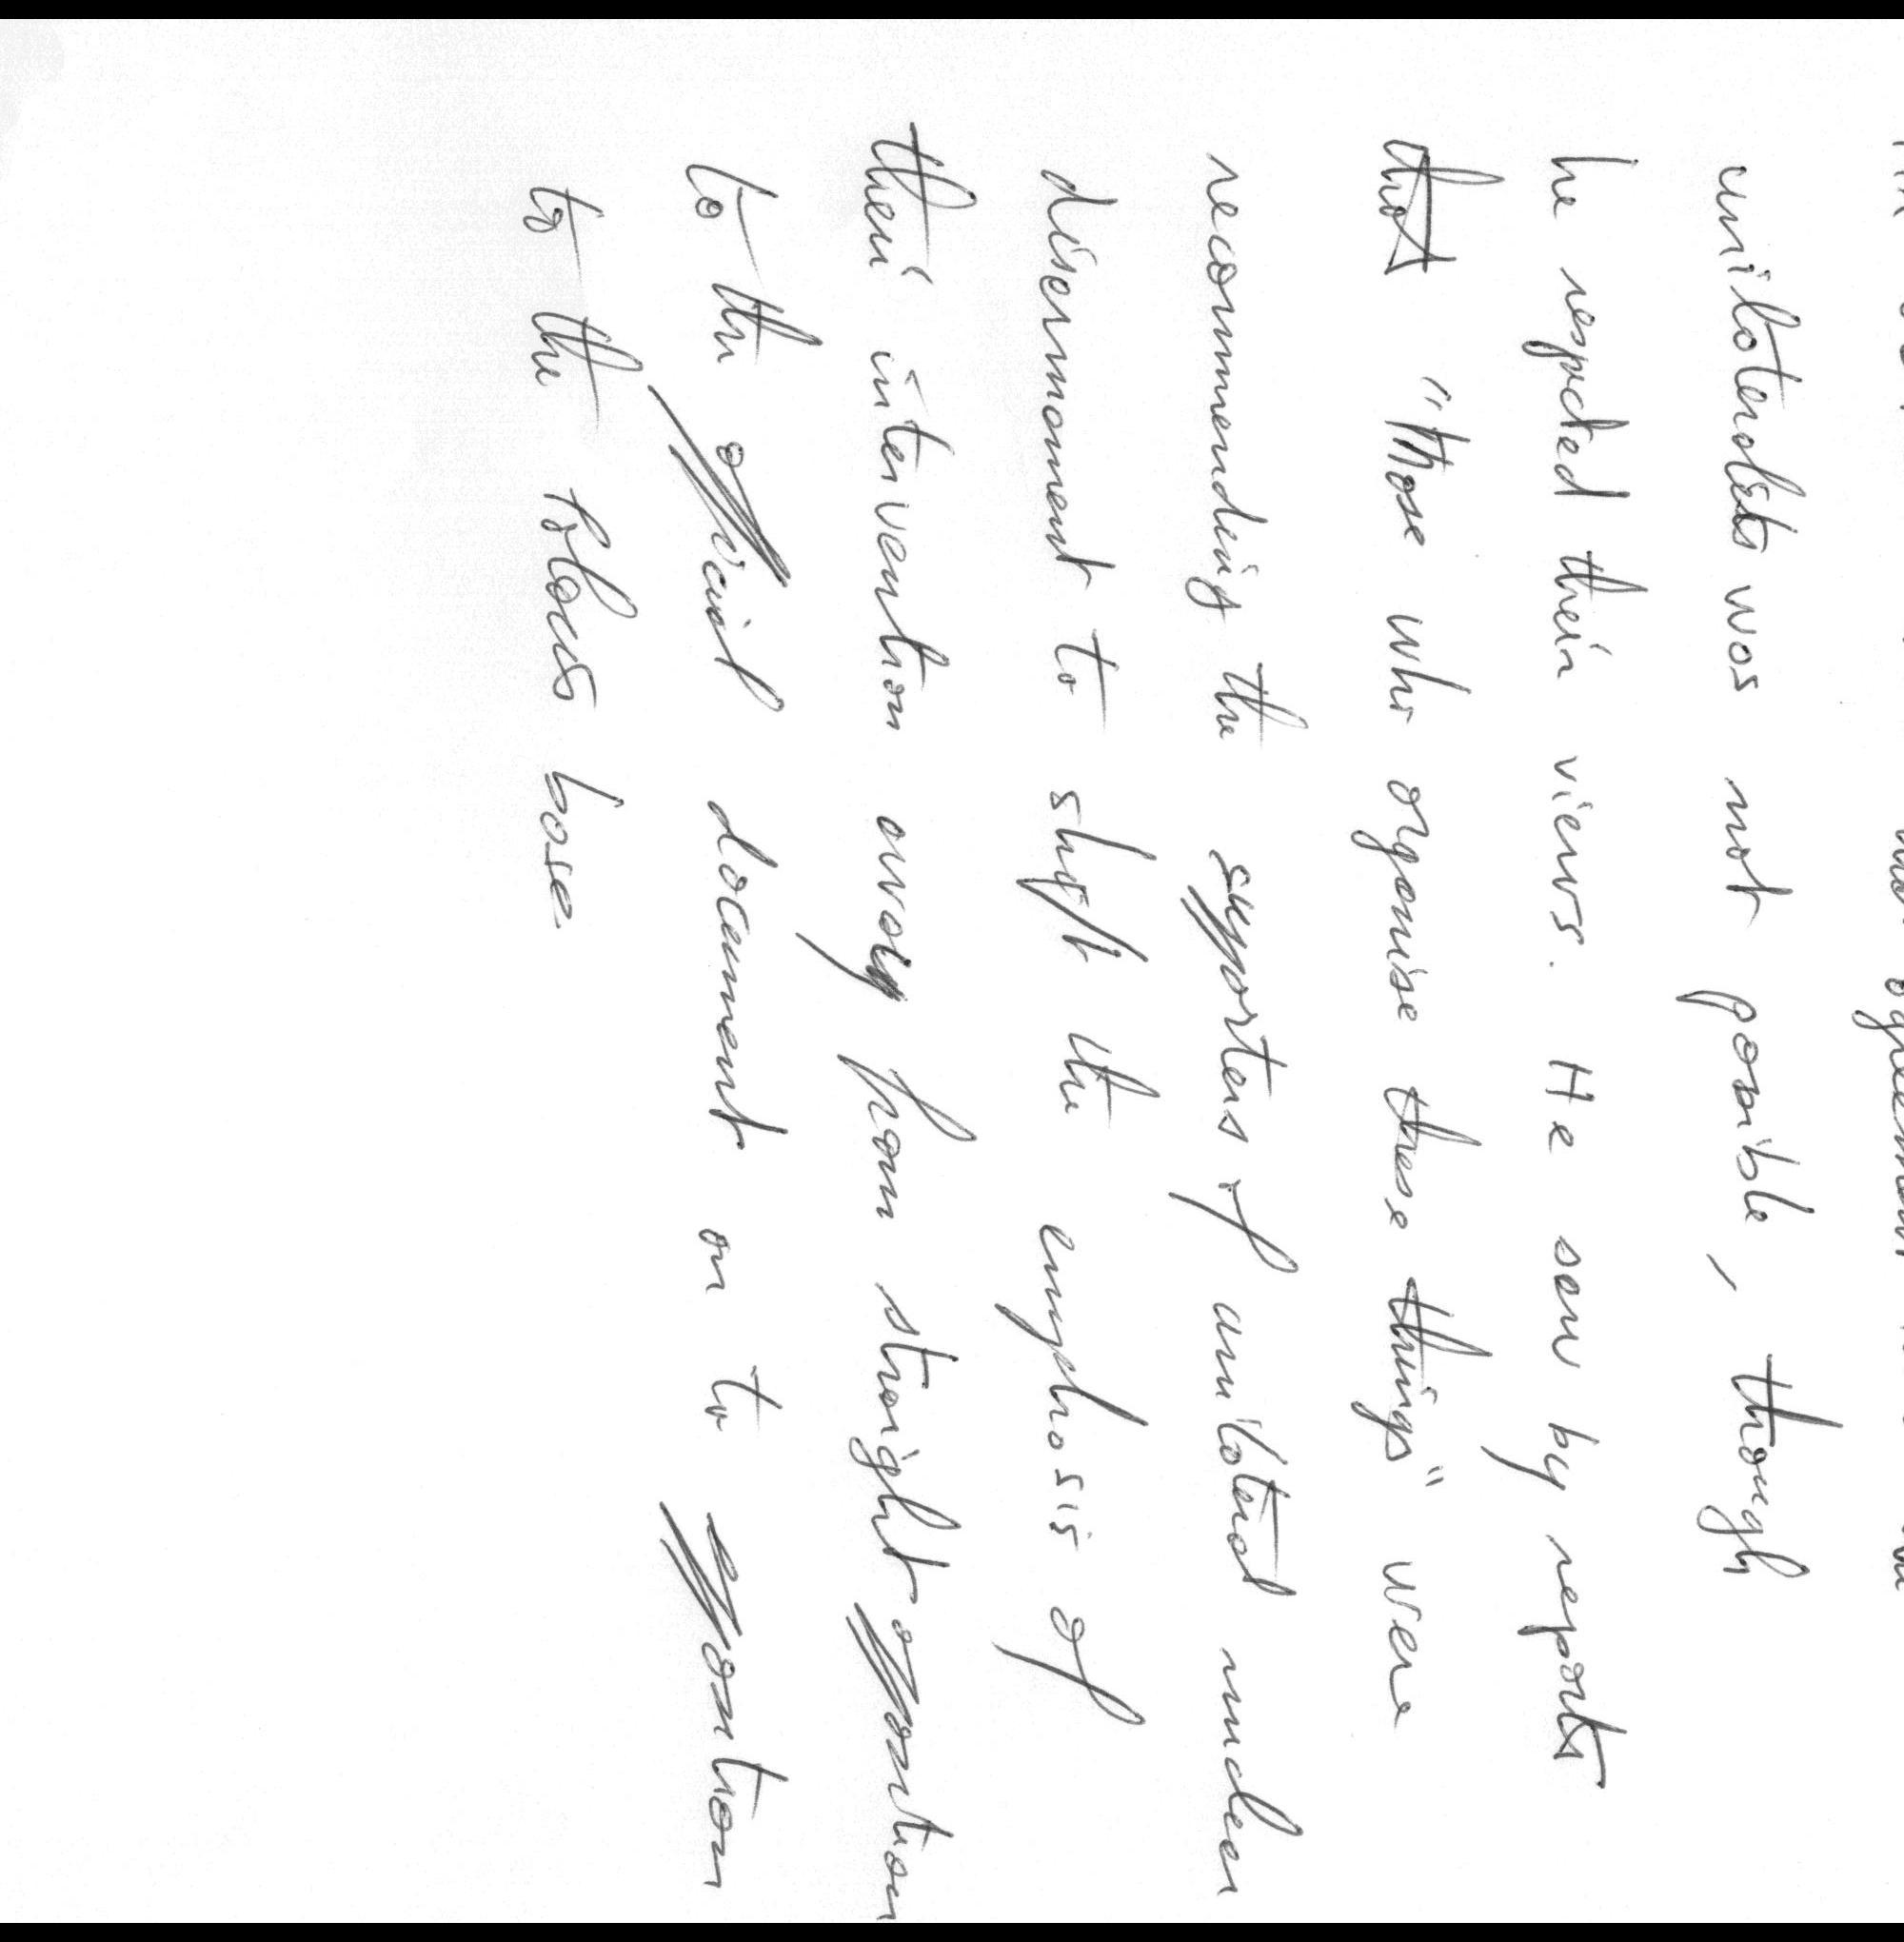 agreement
unilateralists was not possible, though
he respected their views. He saw by reports
that "those who organise these things" were
recommending the supporters of unilateral nuclear
disarmament to shift the emphasis of
their intervention away from straight opposition
to the official document on to opposition
to the Polaris base.